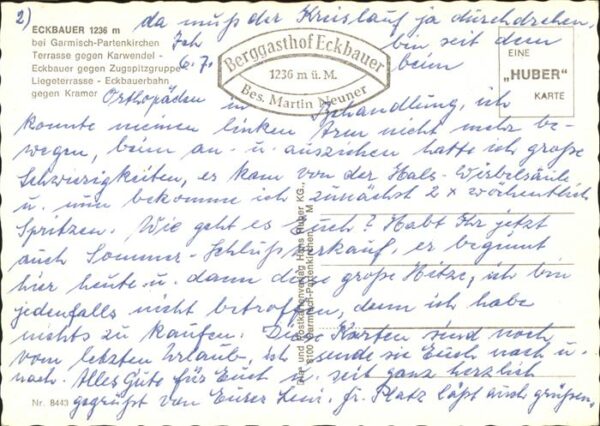 2) da muß der Kreislauf ja durchdrehen.
ECKBAUER 1236 m
bei Garmisch-Partenkirchen
Terrasse gegen Karwendel -
Eckbauer gegen Zugspitzgruppe
Liegeterrasse - Eckbauerbahn
gegen Kramer
Berggasthof Eckbauer
1236 m ü. M.
Bes. Martin Neuner
EINE
„HUBER"
KARTE
Ich bin seit dem
6.7. beim
Orthopäden in Behandlung, ich
konnte meinen linken Arm nicht mehr be-
wegen, beim an- u. ausziehen hatte ich große
Schwierigkeiten, es kam von der Hals-Wirbelsäule
u. nun bekomme ich zunächst 2 x wöchentlich
Spritzen. Wie geht es Euch? Habt Ihr jetzt
auch Sommer-Schlußverkauf, er beginnt
hier heute u. dann diese große Hitze, ich bin
jedenfalls nicht betroffen, denn ich habe
nichts zu kaufen. Diese Karten sind noch
vom letzten Urlaub, ich sende sie Euch nach u.
nach. Alles Gute für Euch u. seit ganz herzlich
gegrüßt von Eurer Fr. Platz läßt auch grüßen.
und Postkartenverlag Hans Huber KG.,
8100 Garmisch-Partenkirchen
Nr. 8443